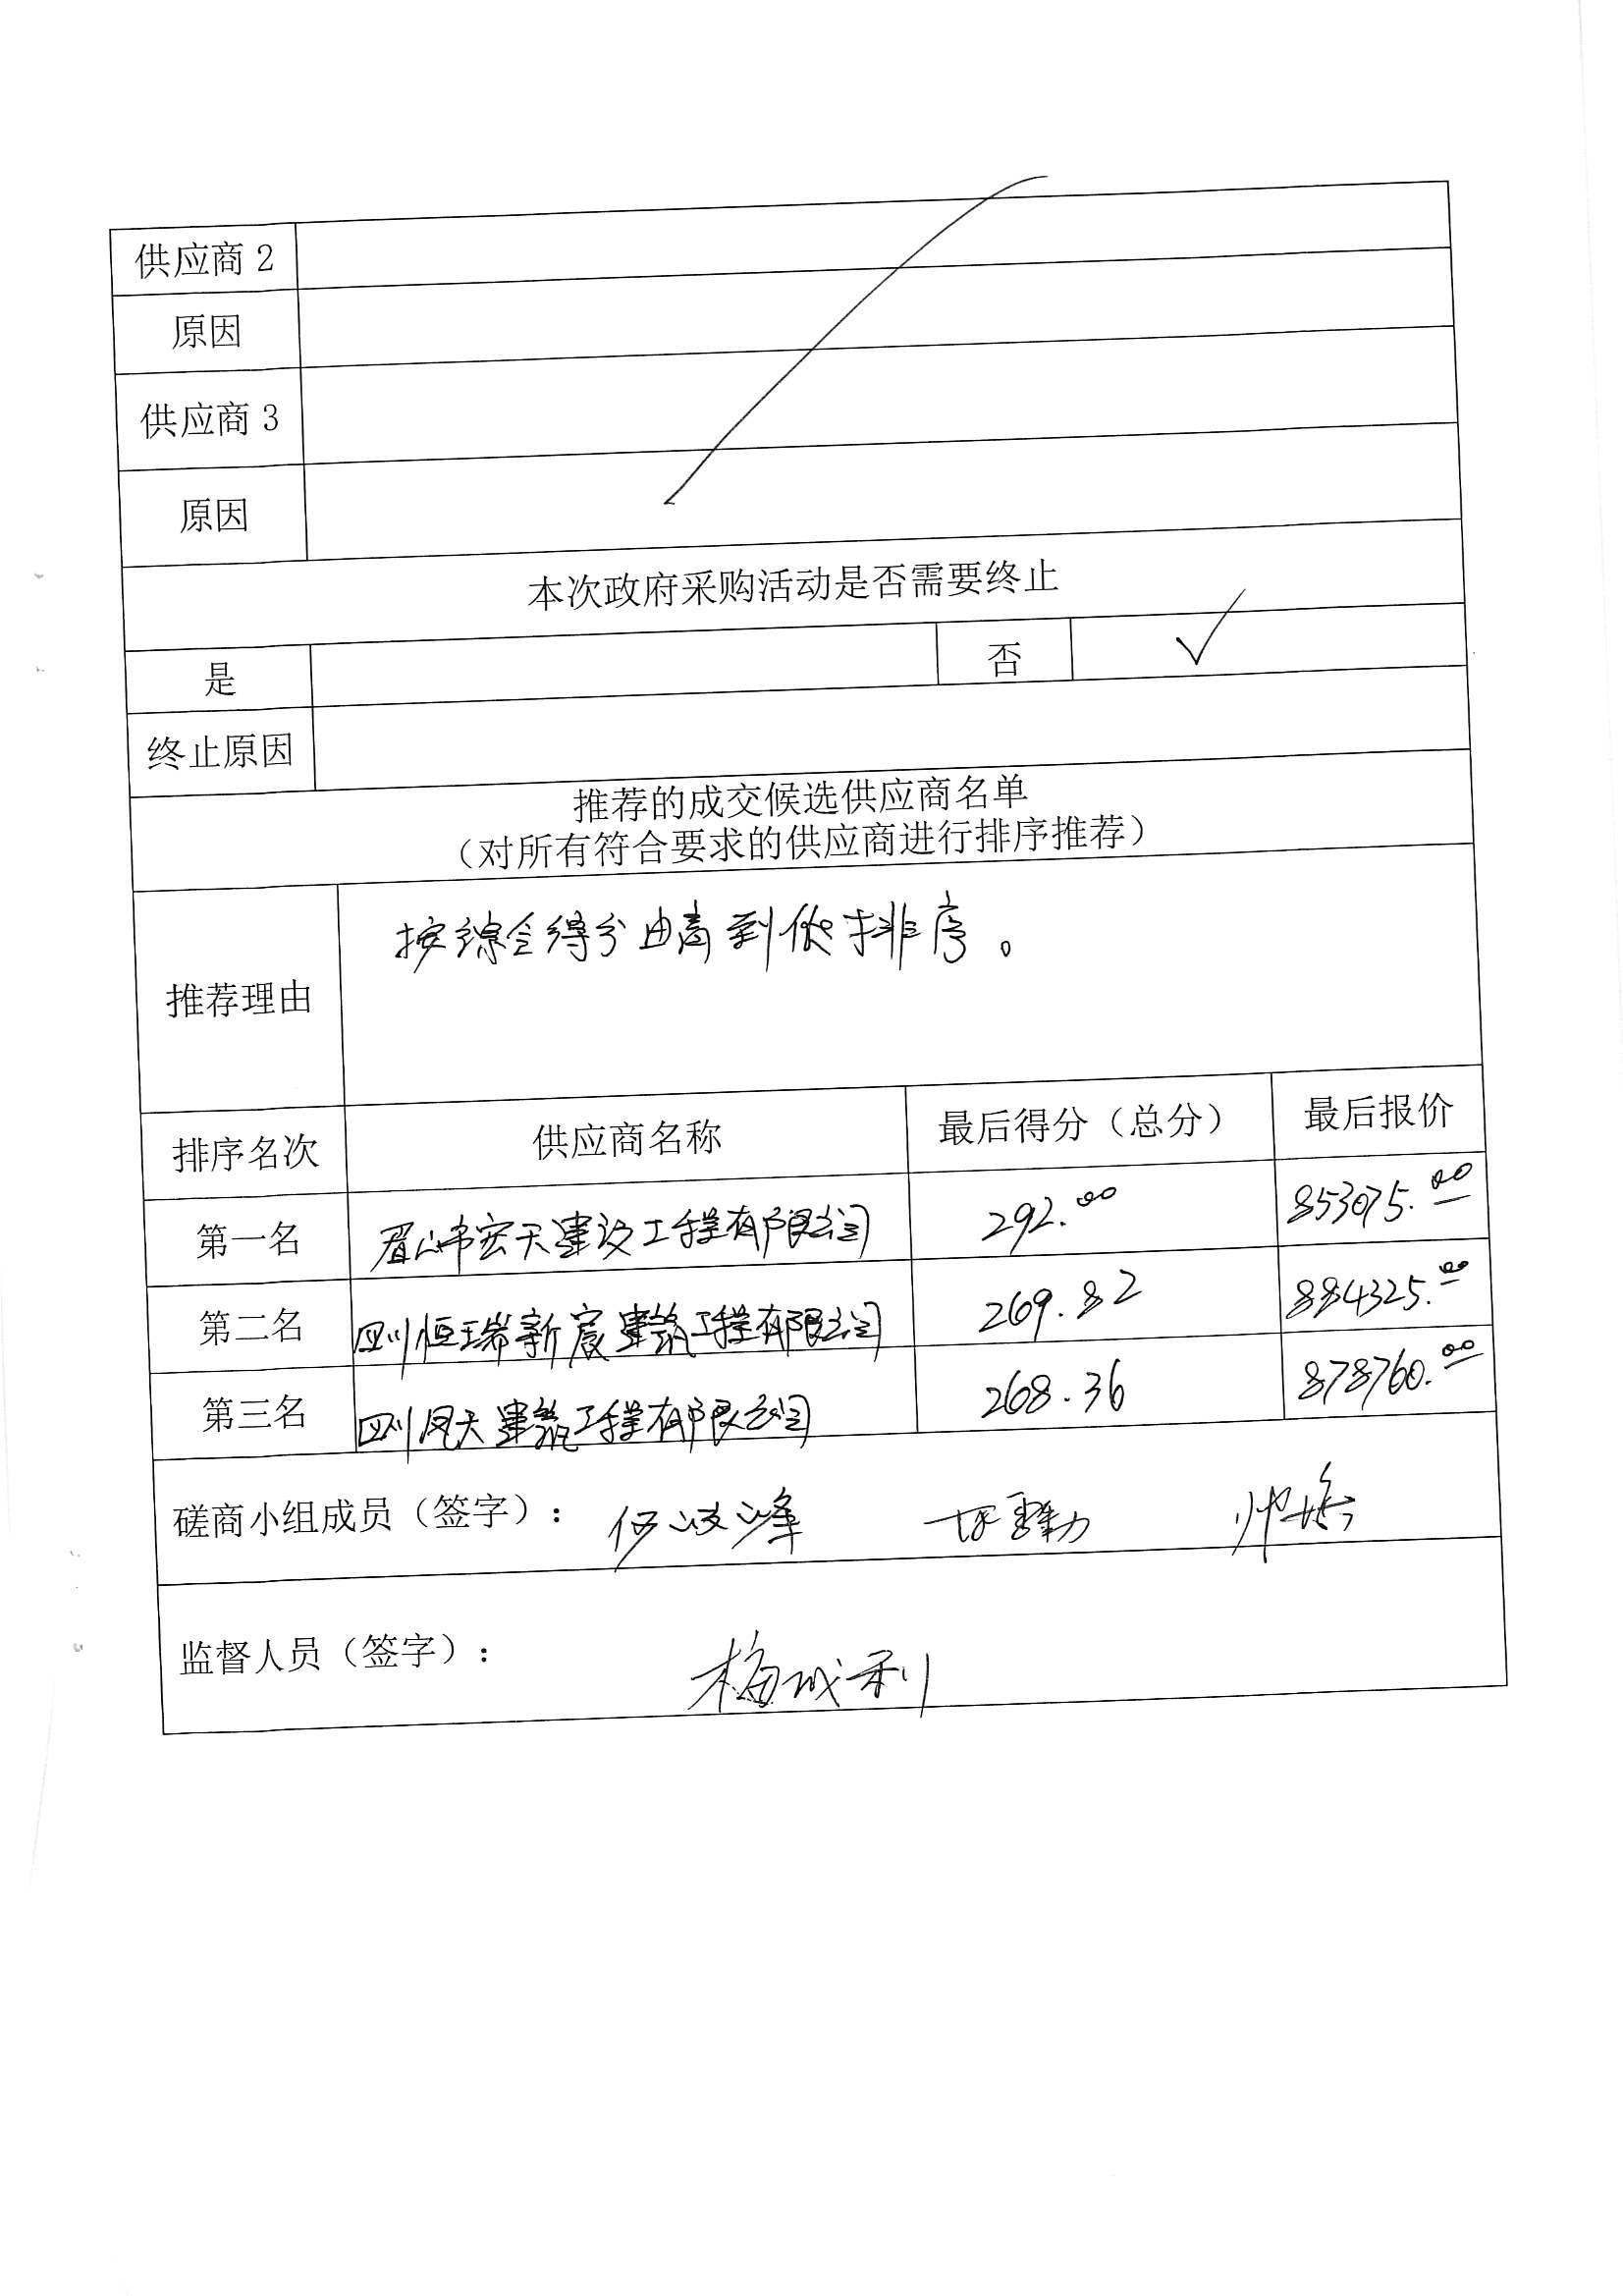 供应商2
原因
供应商3
原因
本次政府采购活动是否需要终止
是 否 ✓
终止原因
推荐的成交候选供应商名单
（对所有符合要求的供应商进行排序推荐）
推荐理由 按综合得分由高到低排序。
排序名次 供应商名称 最后得分（总分） 最后报价
第一名 眉山市宏天建设工程有限公司 292.00 853075.00
第二名 四川恒瑞新宸建筑工程有限公司 269.82 884325.00
第三名 四川凤天建筑工程有限公司 268.36 878760.00
磋商小组成员（签字）：
监督人员（签字）： 梅成利